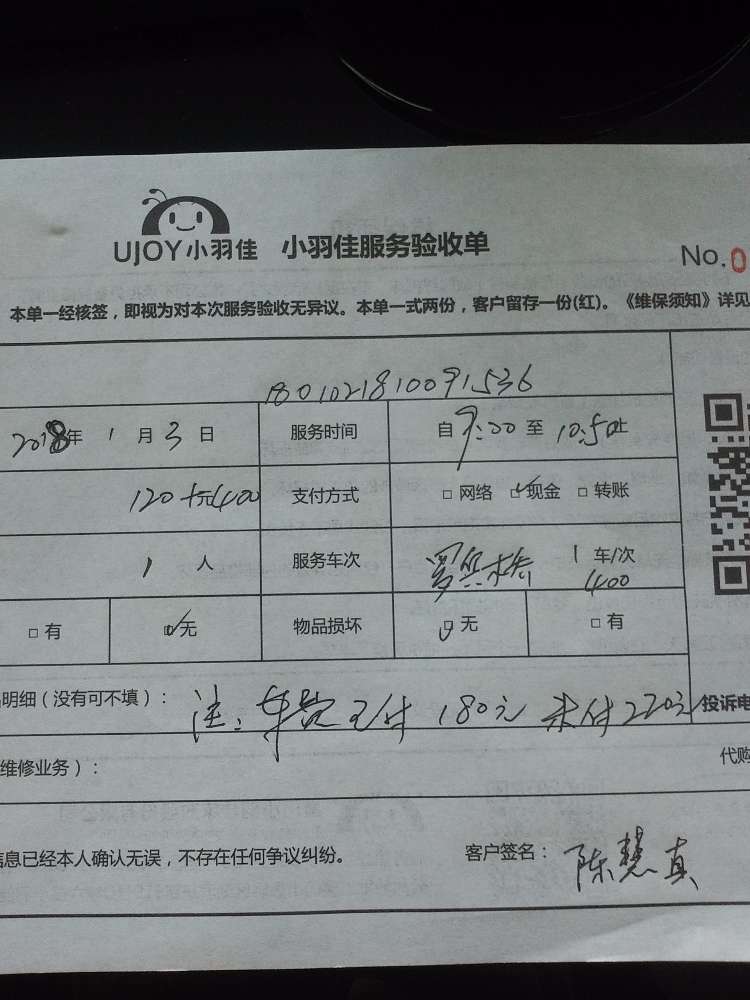 UJOY小羽佳 小羽佳服务验收单
No.0
本单一经核签，即视为对本次服务验收无异议。本单一式两份，客户留存一份(红)。《维保须知》详见
1801021810091536
2018年 1 月 3 日 服务时间 自 9:00 至 10:50止
120+元400 支付方式 □ 网络 ☑现金 □ 转账
1 人 服务车次 1 车/次
400
□ 有 ☑无 物品损坏 ☑ 无 □ 有
明细（没有可不填）： 注：车费已付 180元 未付220元 投诉电
代购
维修业务）：
信息已经本人确认无误，不存在任何争议纠纷。 客户签名： 陈慧真